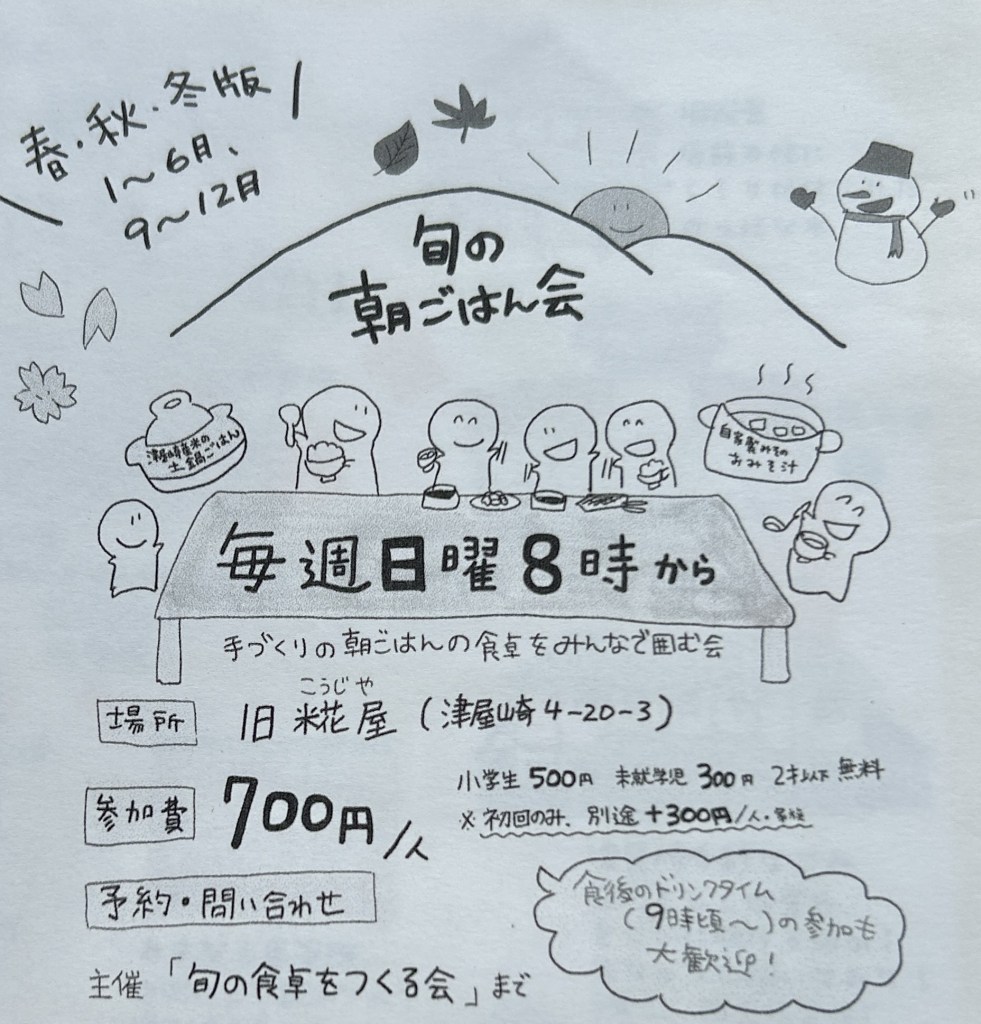 春・秋・冬版
1〜6月、
9〜12月
旬の
朝ごはん会
津屋崎産米の
土鍋ごはん
自家製みその
おみそ汁
毎週日曜8時から
手づくりの朝ごはんの食卓をみんなで囲む会
こうじや
場所 旧糀屋(津屋崎4-20-3)
参加費 700円/人
小学生 500円 未就学児 300円 2才以下 無料
※初回のみ、別途+300円/人・家族
予約・問い合わせ
主催「旬の食卓をつくる会」まで
食後のドリンクタイム
(9時頃〜)の参加も
大歓迎!